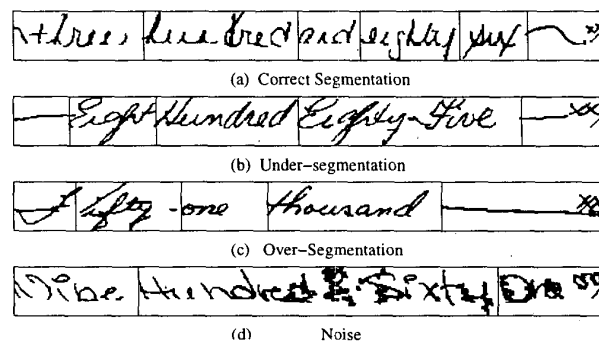 three hundred and eighty six
(a) Correct Segmentation
Eight Hundred Eighty-Five xx
(b) Under-segmentation
Fifty-one thousand
(c) Over-Segmentation
Nine Hundred & Sixty One
(d) Noise